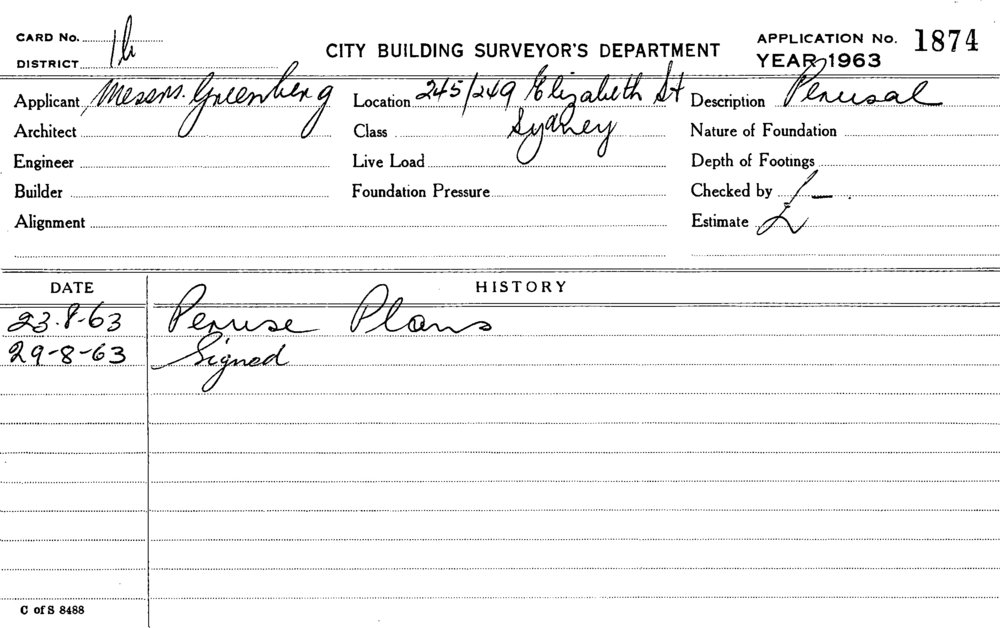 CARD No.
DISTRICT 1b
CITY BUILDING SURVEYOR'S DEPARTMENT
APPLICATION No. 1874
YEAR 1963
Applicant Messrs. Greenberg
Location 245/249 Elizabeth St
Sydney
Description Perusal
Architect
Class
Nature of Foundation
Engineer
Live Load
Depth of Footings
Builder
Foundation Pressure
Checked by
Alignment
Estimate £ / -
DATE HISTORY
23.8-63 Peruse Plans
29-8-63 Signed
C of S 8488